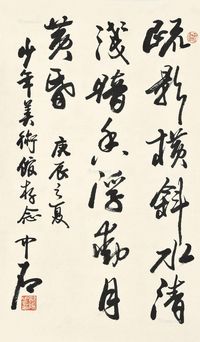 疏影横斜水清
浅暗香浮动月
黄昏
庚辰之夏
少年美術館存念 中石